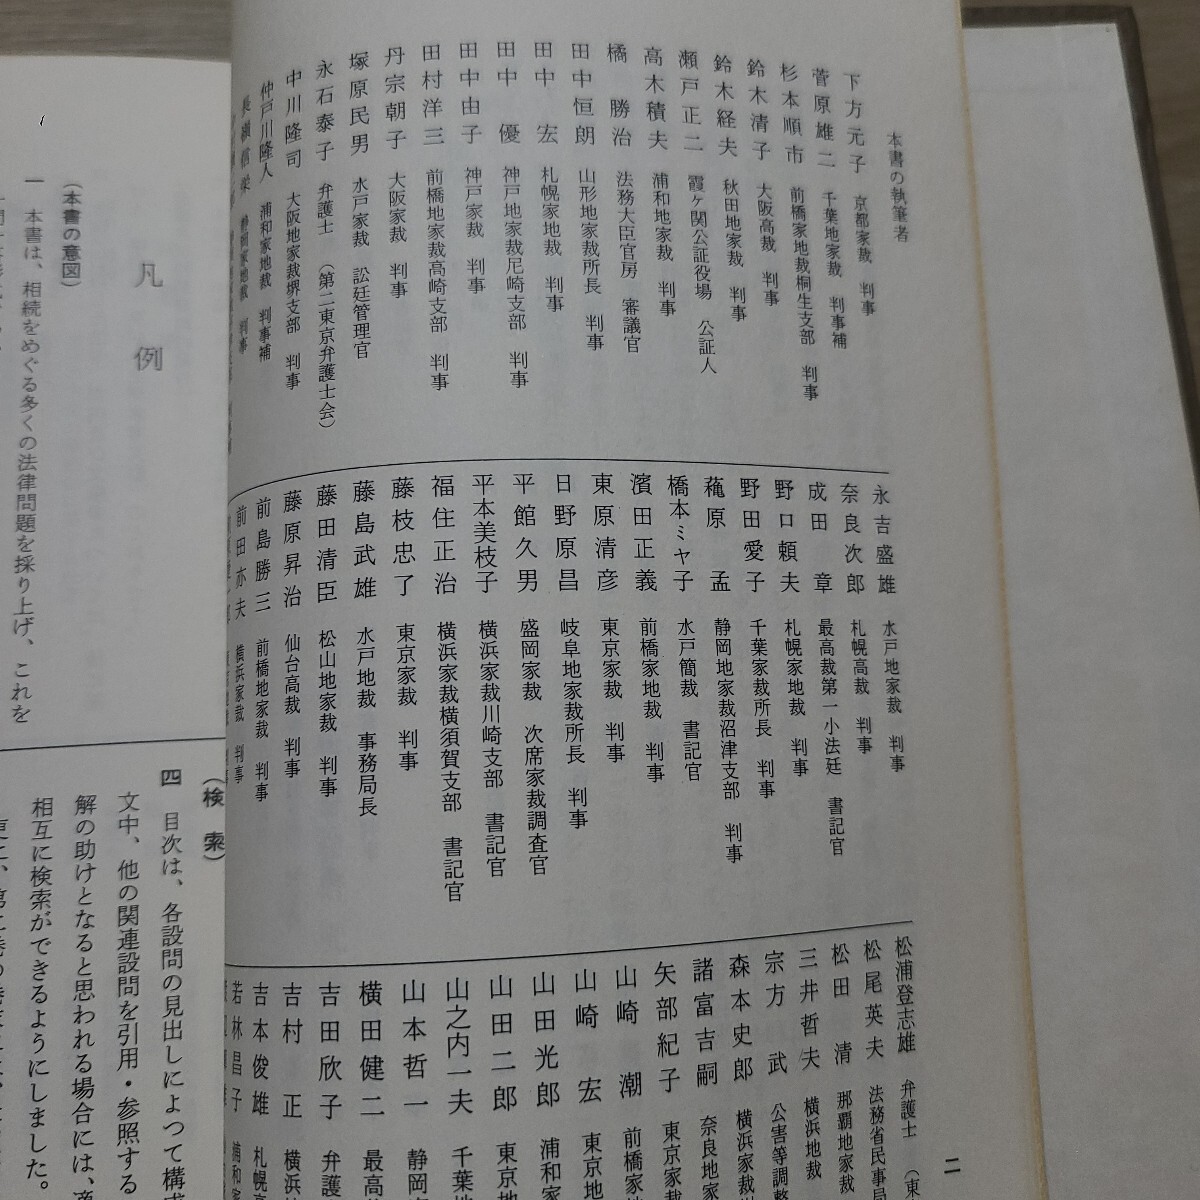 本書の執筆者
下方元子 京都家裁 判事
菅原雄二 千葉地家裁 判事補
杉本順市 前橋家地裁桐生支部 判事
鈴木清子 大阪高裁 判事
鈴木経夫 秋田地家裁 判事
瀬戸正二 霞ヶ関公証役場 公証人
高木積夫 浦和地家裁 判事
橘 勝治 法務大臣官房 審議官
田中恒朗 山形地家裁所長 判事
田中 宏 札幌家地裁 判事
田中 優 神戸地家裁尼崎支部 判事
田中由子 神戸家裁 判事
田村洋三 前橋地家裁高崎支部 判事
丹宗朝子 大阪家裁 判事
塚原民男 水戸家裁 訟廷管理官
永石泰子 弁護士 (第二東京弁護士会)
中川隆司 大阪地家裁堺支部 判事
仲戸川隆人 浦和家地裁 判事補
長嶺信栄 静岡家地裁 判事
永吉盛雄 水戸地家裁 判事
奈良次郎 札幌高裁 判事
成田 章 最高裁第一小法廷 書記官
野口頼夫 札幌家地裁 判事
野田愛子 千葉家裁所長 判事
蓙原 孟 静岡地家裁沼津支部 判事
橋本ミヤ子 水戸簡裁 書記官
濱田正義 前橋家地裁 判事
東原清彦 東京家裁 判事
日野原昌 岐阜地家裁所長 判事
平館久男 盛岡家裁 次席家裁調査官
平本美枝子 横浜家裁川崎支部 書記官
福住正治 横浜家裁横須賀支部 書記官
藤枝忠了 東京家裁 判事
藤島武雄 水戸地裁 事務局長
藤田清臣 松山地家裁 判事
藤原昇治 仙台高裁 判事
前島勝三 前橋地家裁 判事
前田亦夫 横浜家裁 判事
松浦登志雄 弁護士 (東
松尾英夫 法務省民事局
松田 清 那覇地家裁
三井哲夫 横浜地裁
宗方 武 公害等調整
森本史郎 横浜家裁
諸富吉嗣 奈良地家
矢部紀子 東京家裁
山崎 潮 前橋家
山崎 宏 東京地
山田光郎 浦和家
山田二郎 東京地
山之内一夫 千葉地
山本哲一 静岡
横田健二 最高
吉田欣子 弁護
吉村 正 横浜
吉本俊雄 札幌
若林昌子 浦和
二
凡例
(本書の意図)
一 本書は、相続をめぐる多くの法律問題を採り上げ、これを
(検 索)
四 目次は、各設問の見出しによつて構成
文中、他の関連設問を引用・参照する
解の助けとなると思われる場合には、適
相互に検索ができるようにしました。